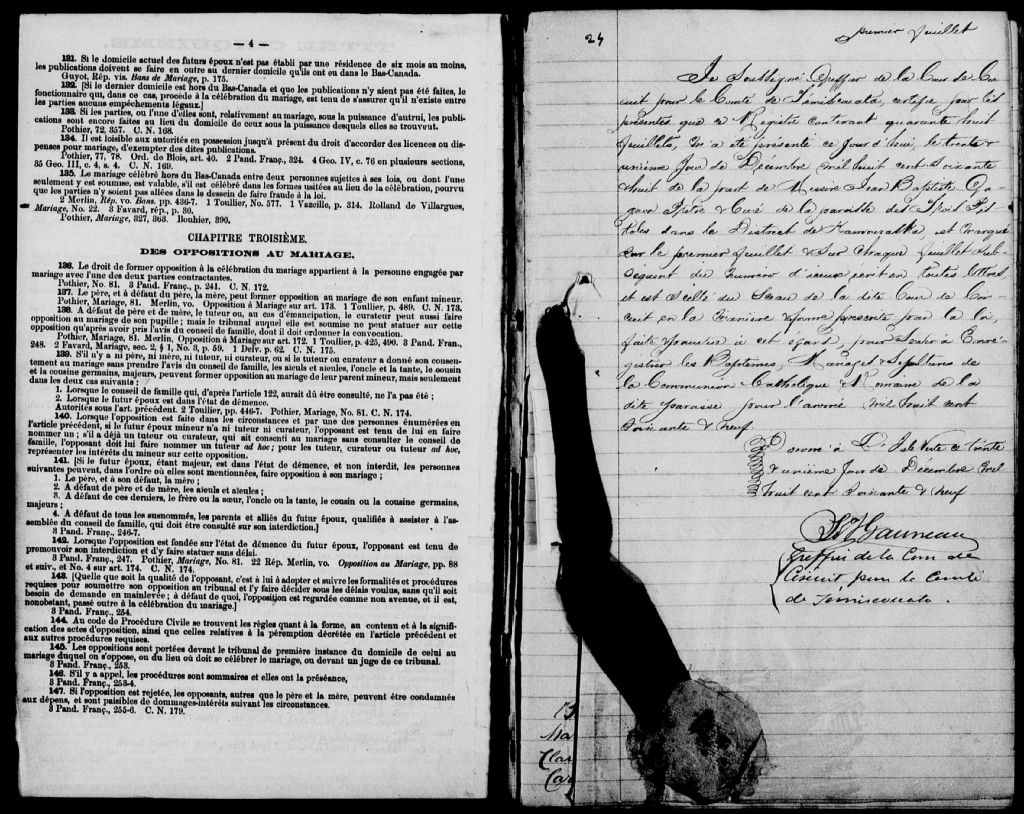 — 4 —
131. Si le domicile actuel des futurs époux n'est pas établi par une résidence de six mois au moins,
les publications doivent se faire en outre au dernier domicile qu'ils ont eu dans le Bas-Canada.
Guyot, Rép. vis. Bans de Mariage, p. 175.
132. [Si le dernier domicile est hors du Bas-Canada et que les publications n'y aient pas été faites, le
fonctionnaire qui, dans ce cas, procède à la célébration du mariage, est tenu de s'assurer qu'il n'existe entre
les parties aucuns empêchements légaux.]
133. Si les parties, ou l'une d'elles, sont, relativement au mariage, sous la puissance d'autrui, les publi-
cations sont encore faites au lieu du domicile de ceux sous la puissance desquels elles se trouvent.
Pothier, 72, 357. C. N. 168.
134. Il est loisible aux autorités en possession jusqu'à présent du droit d'accorder des licences ou dis-
penses pour mariage, d'exempter des dites publications.
Pothier, 77, 78. Ord. de Blois, art. 40. 2 Pand. Franç., 324. 4 Geo. IV, c. 76 en plusieurs sections,
35 Geo. III, c. 4, s. 4. C. N. 169.
135. Le mariage célébré hors du Bas-Canada entre deux personnes sujettes à ses lois, ou dont l'une
seulement y est soumise, est valable, s'il est célébré dans les formes usitées au lieu de la célébration, pourvu
que les parties n'y soient pas allées dans le dessein de faire fraude à la loi.
2 Merlin, Rép. vo. Bans. pp. 436-7. 1 Toullier, No. 577. 1 Vazeille, p. 314. Rolland de Villargues,
Mariage, No. 22. 3 Favard, rép., p. 30.
Pothier, Mariage, 327, 363. Bouhier, 390.
CHAPITRE TROISIÈME.
DES OPPOSITIONS AU MARIAGE.
136. Le droit de former opposition à la célébration du mariage appartient à la personne engagée par
mariage avec l'une des deux parties contractantes.
Pothier, No. 81. 3 Pand. Franç., p. 241. C. N. 172.
137. Le père, et à défaut du père, la mère, peut former opposition au mariage de son enfant mineur.
Pothier, Mariage, 81. Merlin, vo. Opposition à Mariage sur art. 173. 1 Toullier, p. 489. C. N. 173.
138. A défaut de père et de mère, le tuteur ou, au cas d'émancipation, le curateur peut aussi faire
opposition au mariage de son pupille ; mais le tribunal auquel elle est soumise ne peut statuer sur cette
opposition qu'après avoir pris l'avis du conseil de famille, dont il doit ordonner la convocation.
Pothier, Mariage, 81. Merlin, Opposition à Mariage sur art. 172. 1 Toullier, p. 425, 490. 3 Pand. Fran.,
248. 2 Favard, Mariage, sec. 2, § 1, No. 3, p. 59. 1 Delv. p. 62. C. N. 175.
139. S'il n'y a ni père, ni mère, ni tuteur, ni curateur, ou si le tuteur ou curateur a donné son consen-
tement au mariage sans prendre l'avis du conseil de famille, les aïeuls et aïeules, l'oncle et la tante, le cousin
et la cousine germains, majeurs, peuvent former opposition au mariage de leur parent mineur, mais seulement
dans les deux cas suivants :
1. Lorsque le conseil de famille qui, d'après l'article 122, aurait dû être consulté, ne l'a pas été ;
2. Lorsque le futur époux est dans l'état de démence.
Autorités sous l'art. précédent. 2 Toullier, pp. 446-7. Pothier, Mariage, No. 81. C. N. 174.
140. Lorsque l'opposition est faite dans les circonstances et par une des personnes énumérées en
l'article précédent, si le futur époux mineur n'a ni tuteur ni curateur, l'opposant est tenu de lui en faire
nommer un ; s'il a déjà un tuteur ou curateur, qui ait consenti au mariage sans consulter le conseil de
famille, l'opposant doit lui faire nommer un tuteur ad hoc ; pour les tuteur, curateur ou tuteur ad hoc,
représenter les intérêts du mineur sur cette opposition.
141. [Si le futur époux, étant majeur, est dans l'état de démence, et non interdit, les personnes
suivantes peuvent, dans l'ordre où elles sont mentionnées, faire opposition à son mariage ;
1. Le père, et à son défaut, la mère ;
2. A défaut de père et de mère, les aïeuls et aïeules ;
3. A défaut de ces derniers, le frère ou la sœur, l'oncle ou la tante, le cousin ou la cousine germains,
majeurs ;
4. A défaut de tous les susnommés, les parents et alliés du futur époux, qualifiés à assister à l'as-
semblée du conseil de famille, qui doit être consulté sur son interdiction.]
3 Pand. Franç., 246-7.
142. Lorsque l'opposition est fondée sur l'état de démence du futur époux, l'opposant est tenu de
promouvoir son interdiction et d'y faire statuer sans délai.
3 Pand. Franç., 247. Pothier, Mariage, No. 81. 22 Rép. Merlin, vo. Opposition au Mariage, pp. 88
et suiv., et No. 4 sur art. 174. C. N. 174.
143. [Quelle que soit la qualité de l'opposant, c'est à lui à adopter et suivre les formalités et procédures
requises pour soumettre son opposition au tribunal et l'y faire décider sous les délais voulus, sans qu'il soit
besoin de demande en mainlevée ; à défaut de quoi, l'opposition est regardée comme non avenue, et il est,
nonobstant, passé outre à la célébration du mariage.]
3 Pand. Franç., 254.
144. Au code de Procédure Civile se trouvent les règles quant à la forme, au contenu et à la signifi-
cation des actes d'opposition, ainsi que celles relatives à la péremption décrétée en l'article précédent et
aux autres procédures requises.
145. Les oppositions sont portées devant le tribunal de première instance du domicile de celui au
mariage duquel on s'oppose, ou du lieu où doit se célébrer le mariage, ou devant un juge de ce tribunal.
3 Pand. Franç., 253.
146. S'il y a appel, les procédures sont sommaires et elles ont la préséance,
3 Pand. Franç., 253-4.
147. Si l'opposition est rejetée, les opposants, autres que le père et la mère, peuvent être condamnés
aux dépens, et sont paisibles de dommages-intérêts suivant les circonstances.
3 Pand. Franç., 255-6. C. N. 179.
24
premier feuillet
Je Soussigné Greffier de la Cour de Cir
cuit pour le Comté de Témiscouata, certifie par les
présentes que ce Registre contenant quarante huit
feuillets, m'a été présenté ce jour d'hui, le trente &
unième jour de Décembre mil huit cent soixante
& huit de la part de Messire Jean Baptiste Ga
gnon Prêtre & Curé de la paroisse des Trois Pis
toles dans le District de Kamouraska, est marqué
sur le premier feuillet & sur chaque feuillet sub
séquent du numéro d'iceux écrit en toutes lettres,
et est scellé du Sceau de la dite Cour de Cir
cuit en la manière & forme prescrite par la loi,
faite & pourvue à cet égard, pour servir à Enre
gistrer les Baptêmes, Mariages & Sépultures de
la Communion Catholique & Romaine de la
dite paroisse pour l'année mil huit cent
soixante & neuf
Donné à L'Isle Verte ce trente
& unième jour de Décembre mil
huit cent soixante & neuf
Gauvreau
Greffier de la Cour de
Circuit pour le Comté
de Témiscouata.
Ma
Cla
Car